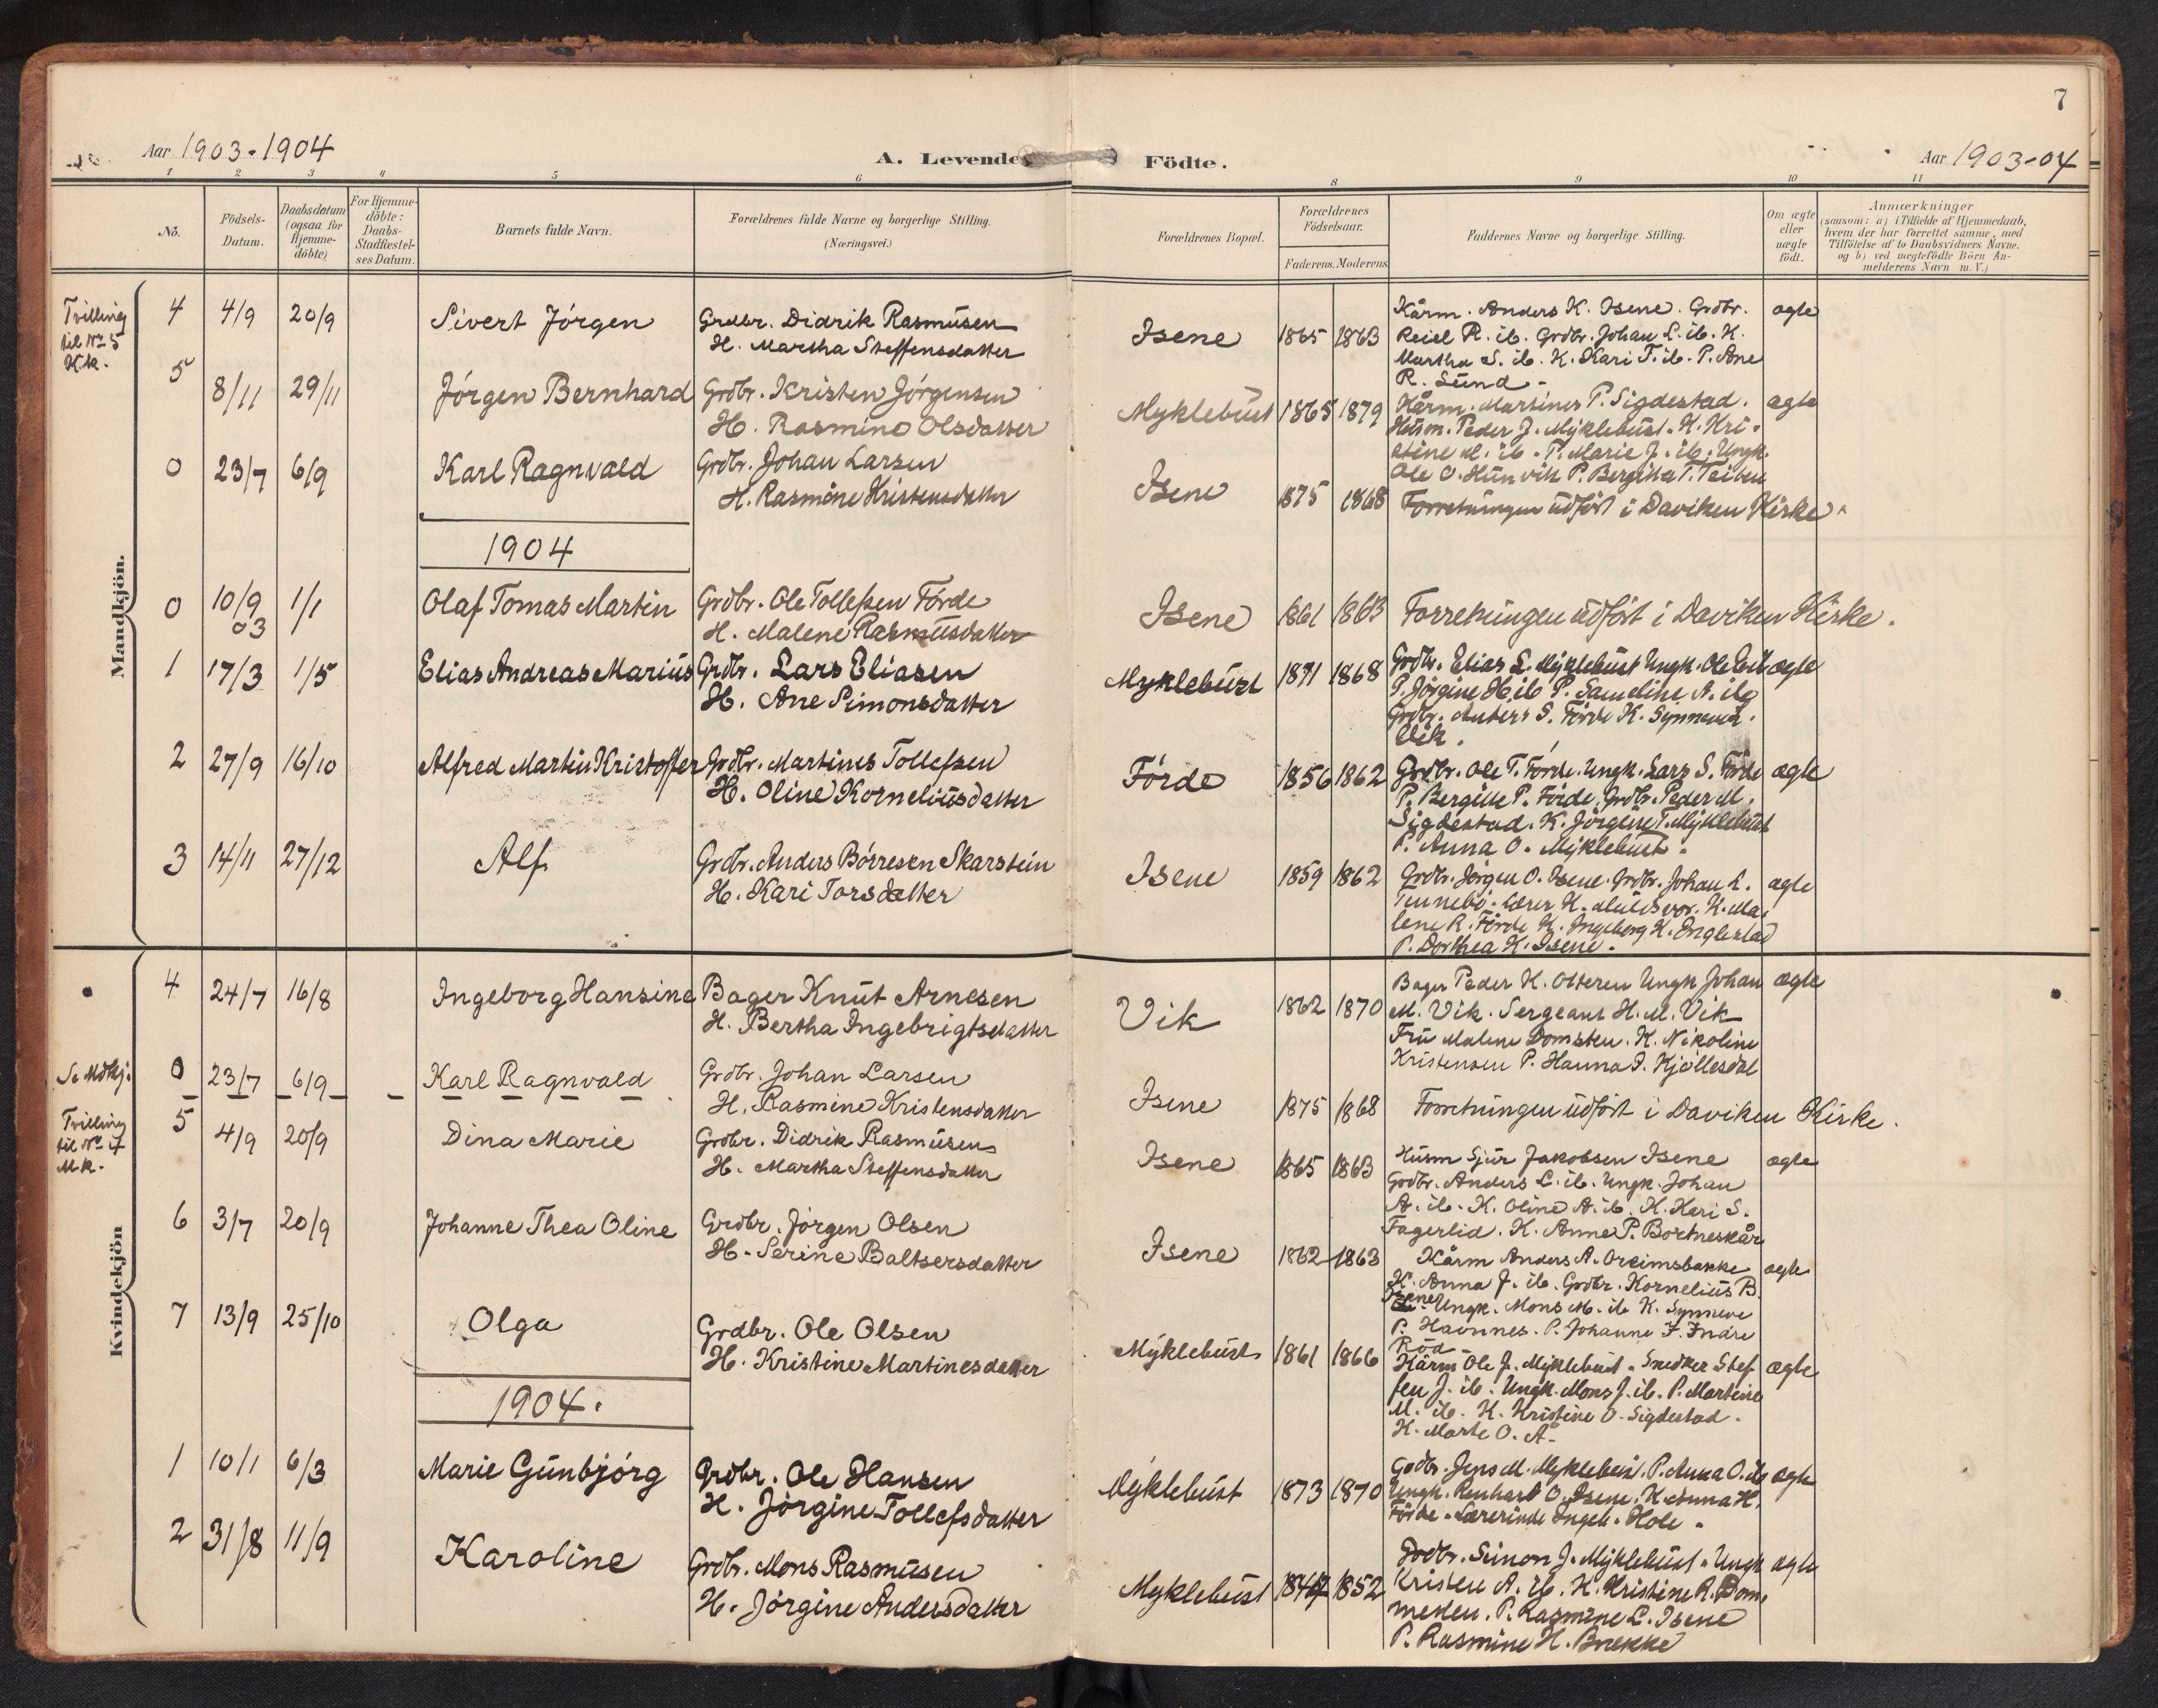 7
Aar 1903-1904
A. Levende Födte.
Aar 1903-04
1 2 3 4 5 6 8 9 10 11
No.
Födsels-
Datum.
Daabsdatum
(ogsaa for
Hjemme-
döbte)
For Hjemme-
döbte:
Daabs-
Stadfæstel-
ses Datum.
Barnets fulde Navn.
Forældrenes fulde Navne og borgerlige Stilling.
(Næringsvei.)
Forældrenes Bopæl.
Forældrenes
Födselsaar.
Faderens. Moderens.
Faddernes Navne og borgerlige Stilling.
Om ægte
eller
uægte
födt.
Anmærkninger
(saasom: a) i Tilfælde af Hjemmedaab,
hvem der har forrettet samme, med
Tilföielse af to Daabsvidners Navne.
og b) ved uægtefödte Börn An-
melderens Navn m. V.)
Mandkjön.
Tvilling
til No 5
K.k.
4 4/9 20/9 Sivert Jörgen
Grdbr. Didrik Rasmusen
H. Martha Steffensdatter
Isene 1865 1863
Kårm. Anders K. Isene. Grdbr.
Reiel R. ib. Grdbr. Johan L. ib. K.
Martha S. ib. K. Kari T. ib. P. Ane
R. Sund -
ægte
5 8/11 29/11 Jörgen Bernhard
Grdbr. Kristen Jörgensen
H. Rasmine Olsdatter
Myklebust 1865 1879
Kårm. Martines P. Sigdestad.
Husm. Peder J. Myklebust. K. Kri-
stine M. ib. P. Marie J. ib. Ungk.
Ole O. Hunvik P. Bergitha T.
ægte
0 23/7 6/9 Karl Ragnvald
Grdbr. Johan Larsen
H. Rasmine Kristensdatter
Isene 1875 1868
Forretningen udfört i Daviken Kirke.
1904
0 10/9 03 1/1 Olaf Tomas Martin
Grdbr. Ole Tollefsen Förde
H. Malene Rasmusdatter
Isene 1861 1863
Forretningen udfört i Daviken Kirke.
1 17/3 1/5 Elias Andreas Marius
Grdbr. Lars Eliasen
H. Ane Simonsdatter
Myklebust 1871 1868
Grdbr. Elias L. Myklebust Ungk. Ole E. ib
P. Jörgine H. ib P. Sameline A. ib
Grdbr. Anders S. Förde K. Synneva
Vik.
ægte
2 27/9 16/10 Alfred Martin Kristoffer
Grdbr. Martinus Tollefsen
H. Oline Korneliusdatter
Förde 1856 1862
Grdbr. Ole T. Förde. Ungk. Lars S. Förde
P. Bergitte P. Förde. Grdbr. Peder M.
Sigdestad. K. Jörgine T. Myklebust
P. Anna O. Myklebust.
ægte
3 14/11 27/12 Alf
Grdbr. Anders Börresen Skarstein
H. Kari Torsdatter
Isene 1859 1862
Grdbr. Jörgen O. Isene. Grdbr. Johan L.
Tennebö. Lærer K. K. Ma-
lene R. Förde K. Ingeborg K. Englestad
P. Dorthea K. Isene.
ægte
Kvindekjön
4 24/7 16/8 Ingeborg Hansine
Bager Knut Arnesen
H. Bertha Ingebrigtsdatter
Vik 1862 1870
Bager Peder K. Otteren Ungk Johan
M. Vik. Sergeant H. M. Vik
Fru Malene Domsten. K. Nikoline
Kristensen P. Hanna J. Kjöllesdal
ægte
Se Mdkj.
0 23/7 6/9 Karl Ragnvald
Grdbr. Johan Larsen
H. Rasmine Kristensdatter
Isene 1875 1868
Forretningen udfört i Daviken Kirke.
Tvilling
til No 4
M.k.
5 4/9 20/9 Dina Marie
Grdbr. Didrik Rasmusen
H. Martha Steffensdatter
Isene 1865 1863
Husm Sjur Jakobsen Isene
Grdbr. Anders L. ib. Ungk. Johan
A. ib. K. Oline A. ib. K. Kari S.
Fagerlid. K. Anne P. Bortneskår
ægte
6 3/7 20/9 Johanne Thea Oline
Grdbr. Jörgen Olsen
H. Serine Baltsersdatter
Isene 1862 1863
Kårm Anders A. Oreimsbakke
K. Anna J. ib. Grdbr. Kornelius B.
Isene Ungk. Mons M. ib K. Synneve
P. Havnnes. P. Johanne F. Indre
Röd
ægte
7 13/9 25/10 Olga
Grdbr. Ole Olsen
H. Kristine Martinesdatter
Myklebust 1861 1866
Kårm Ole J. Myklebust. Snedker Stef
fen J. ib. Ungk. Mons J. ib. P. Martine
M. ib. K. Kristine O. Sigdestad.
K. Marte O. A-
ægte
1904.
1 10/1 6/3 Marie Gunbjörg
Grdbr. Ole Hansen
H. Jörgine Tollefsdatter
Myklebust 1873 1870
Grdbr. Jens M. Myklebust. P. Anna O. ib
Ungk. Renhart O. Isene. K. Anna H.
Förde. Lærerinde Ingeb. Hole.
ægte
2 31/8 11/9 Karoline
Grdbr. Mons Rasmusen
H. Jörgine Andersdatter
Myklebust 1852
Grdbr. Simon J. Myklebust. Ungk
Kristen A. ib. K. Kristine R. Dom-
mesten. P. Rasmine L. Isene
P. Rasmine H. Brekke
ægte